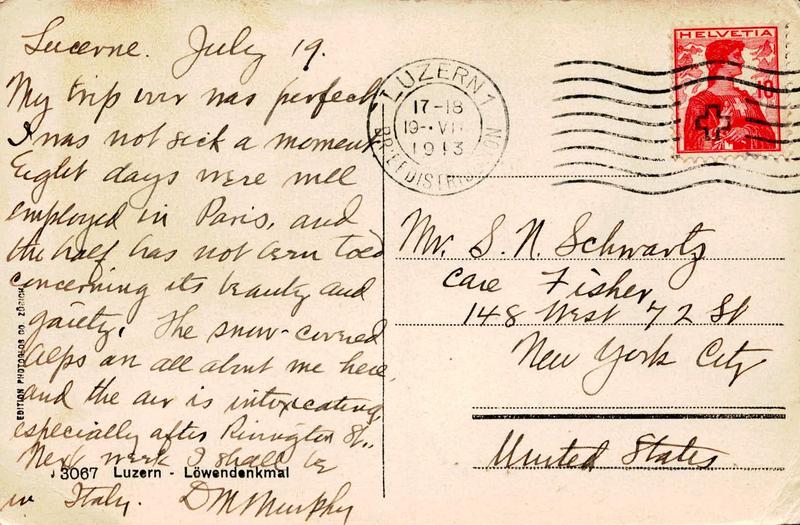 Lucerne. July 19.
My trip over was perfect
I was not sick a moment
Eight days were well
employed in Paris, and
the half has not been told
concerning its beauty and
gaiety. The snow-covered
Alps are all about me here,
and the air is intoxicating,
especially after Rivington St.
Next week I shall be
in Italy. DM Murphy
EDITION PHOTOGLOB CO. ZÜRICH
3067 Luzern - Löwendenkmal
LUZERN 1
17-18
19. VII
1913
BRIEFDISTRIB
HELVETIA
Mr. S. N. Schwartz
care Fisher
148 West 72 St
New York City
United States